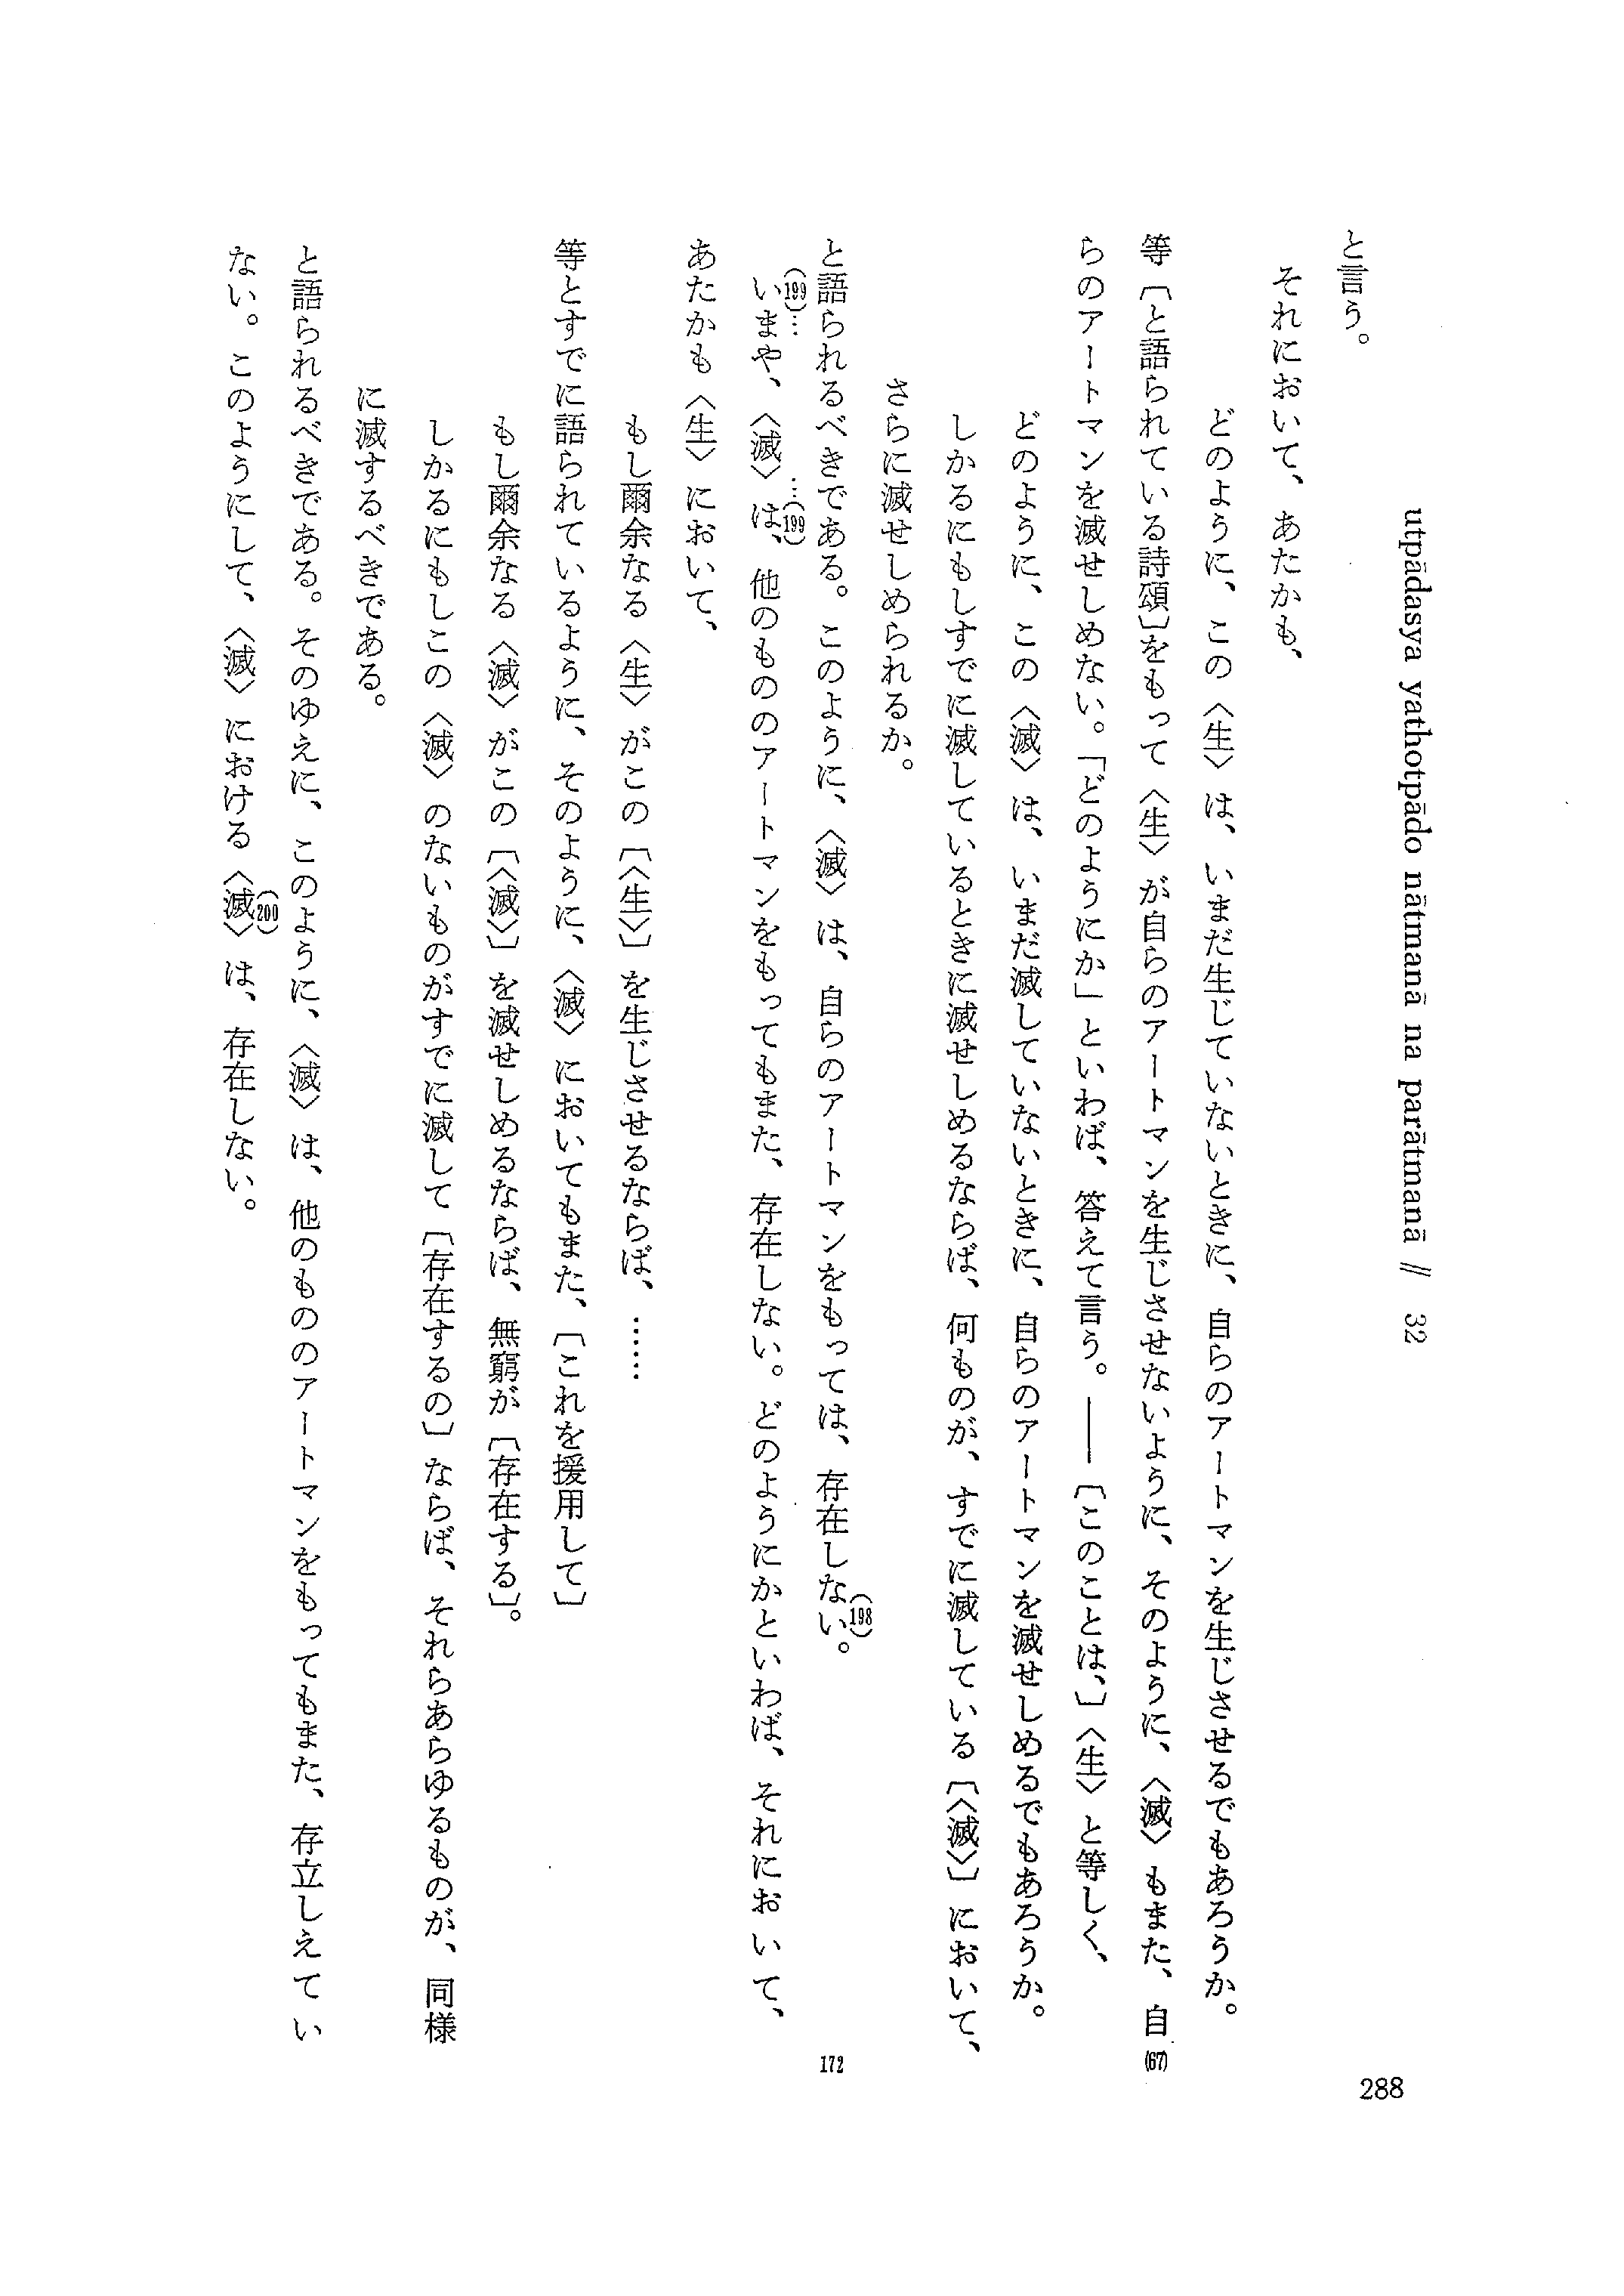 utpādasya yathotpādo nātmanā na parātmanā // 32
と言う。
それにおいて、あたかも、
どのように、この〈生〉は、いまだ生じていないときに、自らのアートマンを生じさせるでもあろうか。
等〔と語られている詩頌〕をもって〈生〉が自らのアートマンを生じさせないように、そのように、〈滅〉もまた、自
(67)
らのアートマンを滅せしめない。「どのようにか」といわば、答えて言う。――〔このことは、〕〈生〉と等しく、
どのように、この〈滅〉は、いまだ滅していないときに、自らのアートマンを滅せしめるでもあろうか。
しかるにもしすでに滅しているときに滅せしめるならば、何ものが、すでに滅している〔〈滅〉〕において、
さらに滅せしめられるか。
と語られるべきである。このように、〈滅〉は、自らのアートマンをもっては、存在しない。(198)
172
(199)…いまや、〈滅〉…(199)は、他のもののアートマンをもってもまた、存在しない。どのようにかといわば、それにおいて、
あたかも〈生〉において、
もし爾余なる〈生〉がこの〔〈生〉〕を生じさせるならば、……
等とすでに語られているように、そのように、〈滅〉においてもまた、〔これを援用して〕
もし爾余なる〈滅〉がこの〔〈滅〉〕を滅せしめるならば、無窮が〔存在する〕。
しかるにもしこの〈滅〉のないものがすでに滅して〔存在するの〕ならば、それらあらゆるものが、同様
に滅するべきである。
と語られるべきである。そのゆえに、このように、〈滅〉は、他のもののアートマンをもってもまた、存立しえてい
ない。このようにして、〈滅〉における〈滅〉(200)は、存在しない。
288